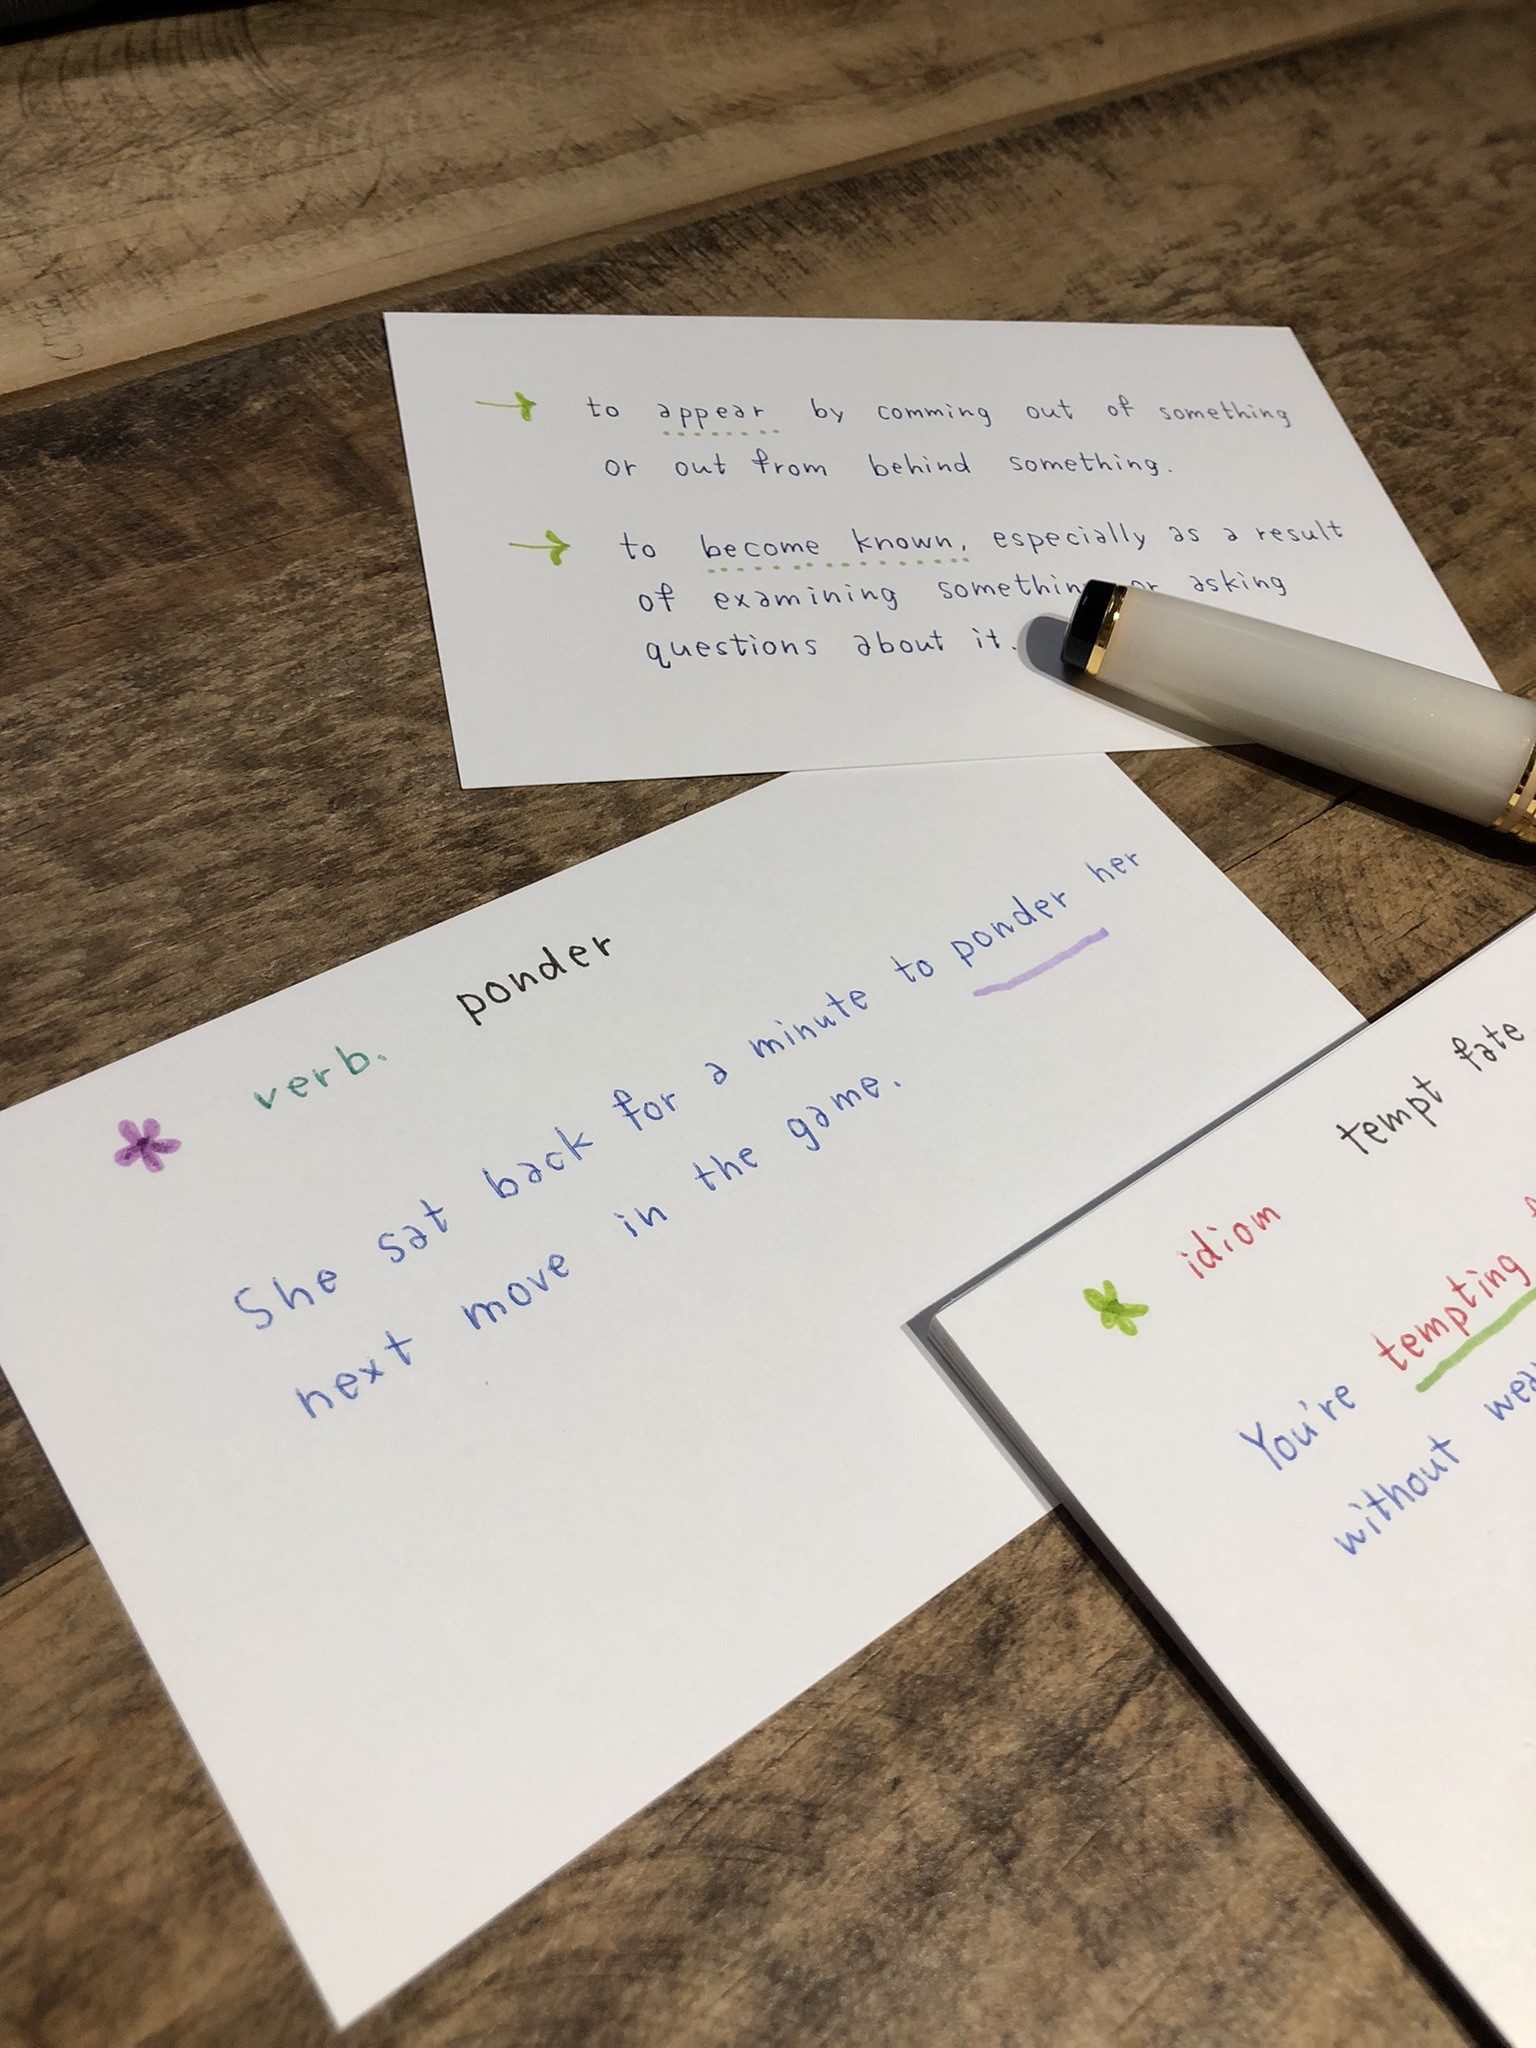 to appear by comming out of something
or out from behind something.
to become known, especially as a result
of examining something or asking
questions about it.
ponder
verb.
She sat back for a minute to ponder her
next move in the game.
tempt fate
idiom
You're tempting
without